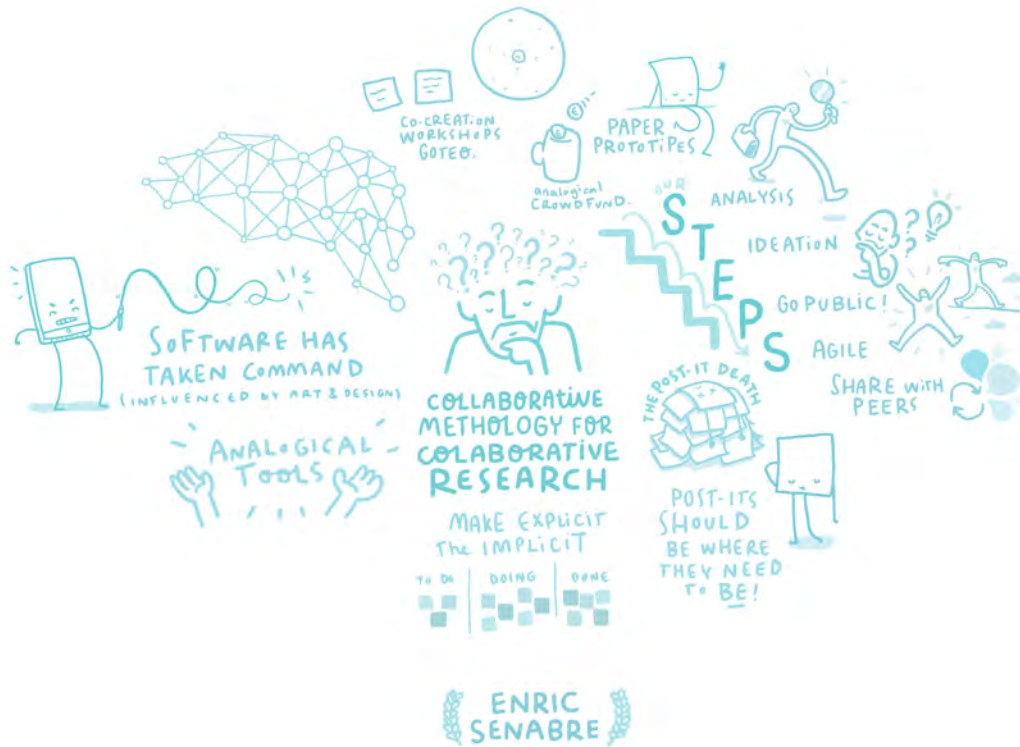 CO-CREATION
WORKSHOPS
GOTEO.
analogical
CROWDFUND.
PAPER
PROTOTIPES
OUR
STEPS
ANALYSIS
IDEATION
GO PUBLIC!
AGILE
SHARE WITH
PEERS
SOFTWARE HAS
TAKEN COMMAND
(INFLUENCED BY ART & DESIGN)
ANALOGICAL
TOOLS
COLLABORATIVE
METHOLOGY FOR
COLABORATIVE
RESEARCH
MAKE EXPLICIT
THE IMPLICIT
TO DO
DOING
DONE
THE POST-IT DEATH
POST-ITS
SHOULD
BE WHERE
THEY NEED
TO BE!
ENRIC
SENABRE